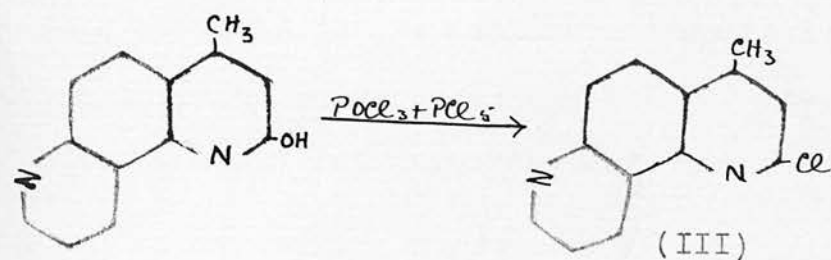 CH3
N
N
OH
POCl3+PCl5
CH3
N
N
Cl
(III)